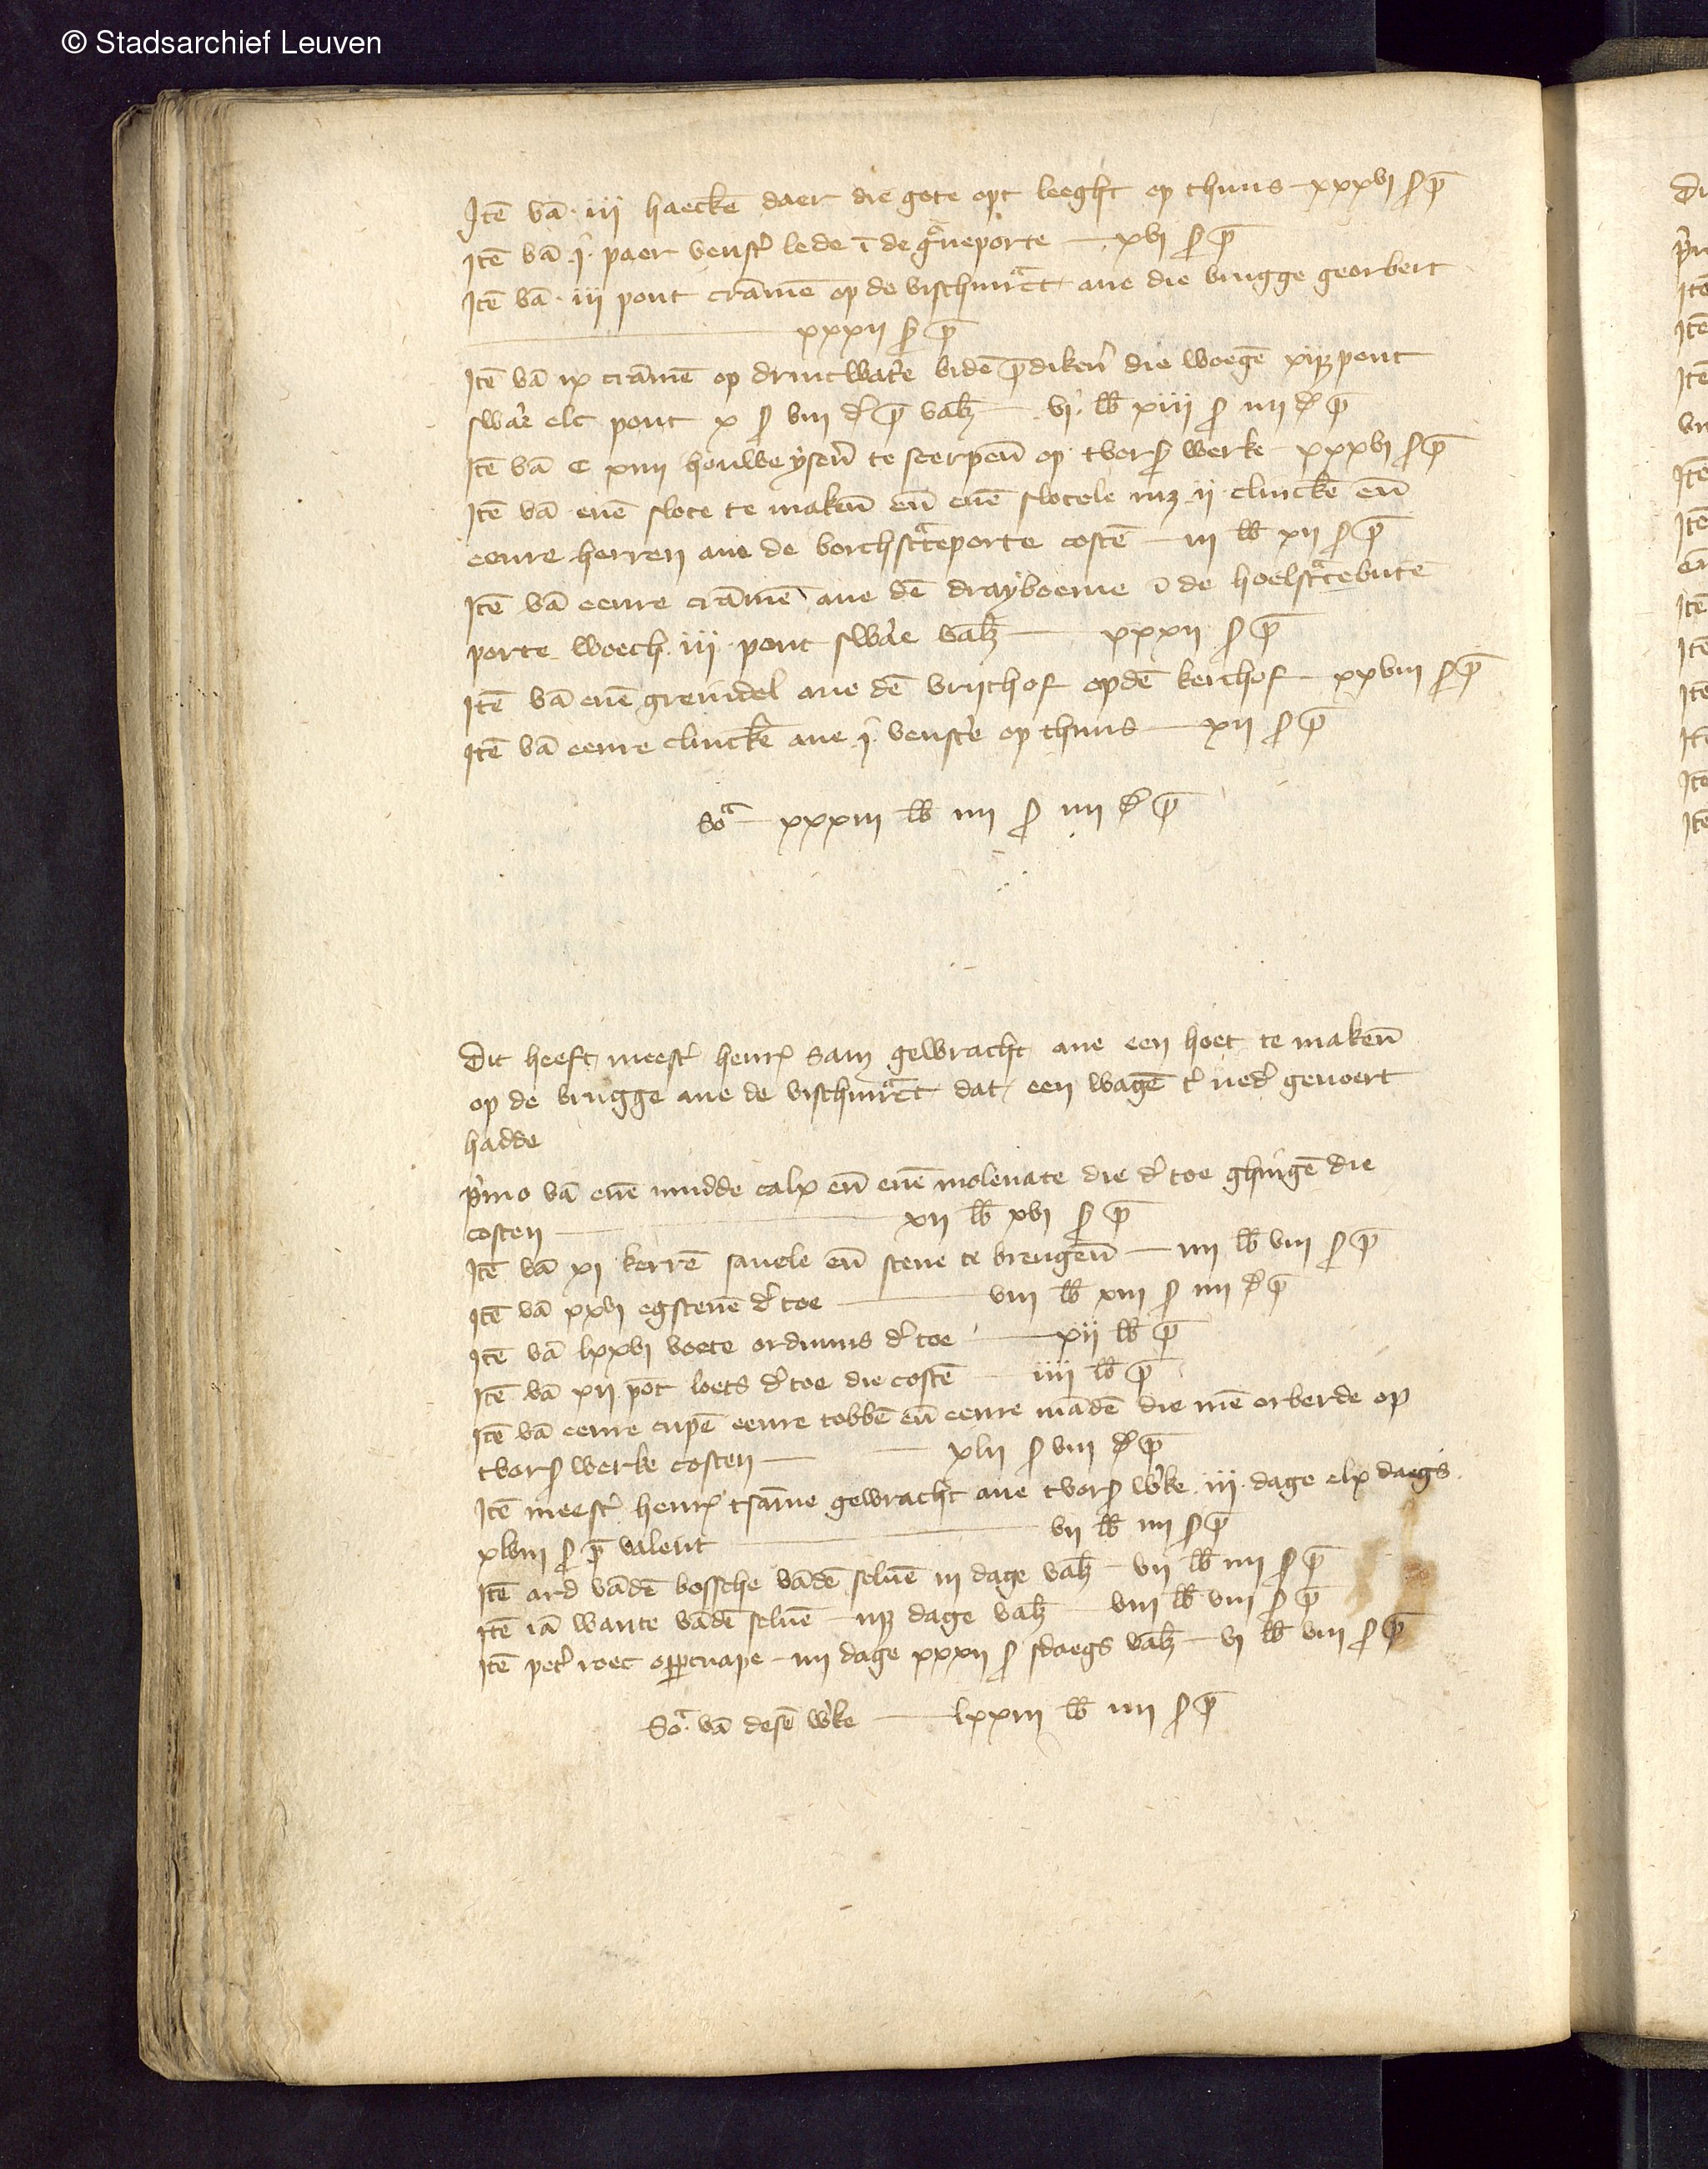 © Stadsarchief Leuven
Itē vā iij haeckē daer die gote opt leeght op thuus xxxvi s p̄
Itē vā i paer venst' lede ī de gͣueporte xvi s p̄
Itē vā iij pont crāmē op de vischmͣct ane die brugge georbert
xxxij s p̄
Itē vā ix crāmē op drincwat'e bidē p̄diker' die woegē pont
swar elc pont x s viij d' p̄ val' vi lb xiij s iiij d' p̄
Itē vā C xiiij houweyser' te scerpen̄ op tvors werke xxxvi s p̄
Itē vā enē slote te maken̄ en̄ enē slotele mz ij clinckē en̄
eenre herren ane de borchstͣteporte costē iij lb xij s p̄
Itē vā eenre crāmē ane dē drayboeme ī de hoelstͣtebutē
porte woech iij pont sware val' xxxij s p̄
Itē vā enē greindel ane dē vrijthof opdē kerchof xxviij s p̄
Itē vā eenre clinckē ane i venst'e op thuus xij s p̄
Soͣ xxxiij lb iiij s iiij d' p̄
Dit heeft meest' henr' Sam gewracht ane een hoet te maken̄
op de brugge ane de vischmͣct dat een wagē t' ned' geuoert
hadde
p'mo vā enē mudde calx en̄ enē molenate die d' toe ghingē die
costen xij lb xvi s p̄
Itē vā xi kerrē sauele en̄ stene te brengen̄ iiij lb viij s p̄
Itē vā xxvi egstenē d' toe viij lb xiij s iiij d' p̄
Itē vā lxxvi voete orduuns d' toe xij lb p̄
Itē vā xij pōt loets d' toe die costē iiij lb p̄
Itē vā eenre cupē eenre tobbē en̄ eenre mādē die mē orberde op
tvors werke costen xlij s viij d' p̄
Itē meest' henr' tsāme gewracht ane tvors w'ke iij dage elx daegs
xlviij s p̄ valent vij lb iiij s p̄
Itē ard vādē bossche vādē seluē iij dage val' vij lb iiij s p̄
Itē iā wante vādē seluē dage val' viij lb viij s p̄
Itē pet' roec opp̄cnape iiij dage xxxij s sdaegs val' vi lb viij s p̄
Soͣ vā desē w'ke lxxiij lb iiij s p̄